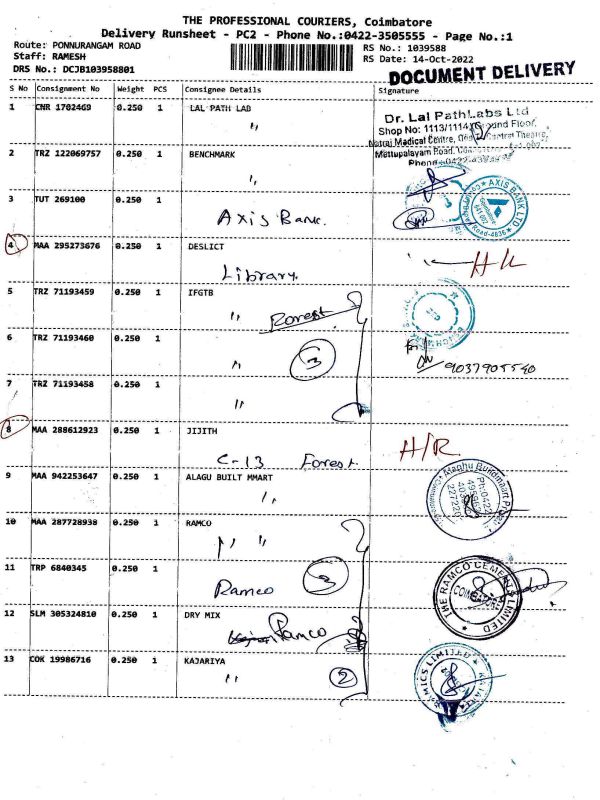 THE PROFESSIONAL COURIERS, Coimbatore
Delivery Runsheet - PC2 - Phone No.:0422-3505555 - Page No.:1
Route: PONNURANGAM ROAD
RS No.: 1039588
Staff: RAMESH
RS Date: 14-Oct-2022
DRS No.: DCJB103958801
DOCUMENT DELIVERY
S No Consignment No Weight PCS Consignee Details Signature
1 CNR 1702469 0.250 1 LAL PATH LAB
Dr. Lal PathLabs Ltd
Shop No: 1113/1114, Ground Floor,
Mettupalayam Road,
2 TRZ 122069757 0.250 1 BENCHMARK
3 TUT 269100 0.250 1
Axis Bank.
AXIS BANK LTD
4 MAA 295273676 0.250 1 DESLICT
Library.
5 TRZ 71193459 0.250 1 IFGTB
" Forest
6 TRZ 71193460 0.250 1
3
9037905540
7 TRZ 71193458 0.250 1
"
8 MAA 288612923 0.250 1 JIJITH
H/R
C-13 Forest.
9 MAA 942253647 0.250 1 ALAGU BUILT MMART
10 MAA 287728938 0.250 1 RAMCO
11 TRP 6840345 0.250 1
Ramco
3
THE RAMCO CEMENTS LIMITED
COIMBATORE
12 SLM 305324810 0.250 1 DRY MIX
Ramco
13 COK 19986716 0.250 1 KAJARIYA
" 2